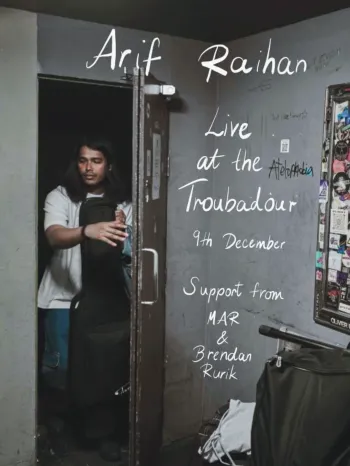 Arif Raihan
Live
at the
Troubadour
9th December
Support from
MAR
&
Brendan
Rurik